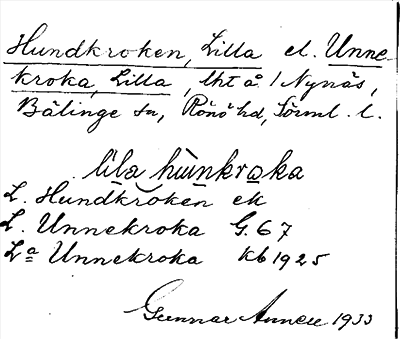 Hundkroken, Lilla el. Unne-
kroka, Lilla, lht å / Nynäs,
Bälinge sn, Rönö hd, Sörml. l.
lila hùnkroka
L. Hundkroken ek
L. Unnekroka G. 67
La Unnekroka kb 1925
Gunnar 1933